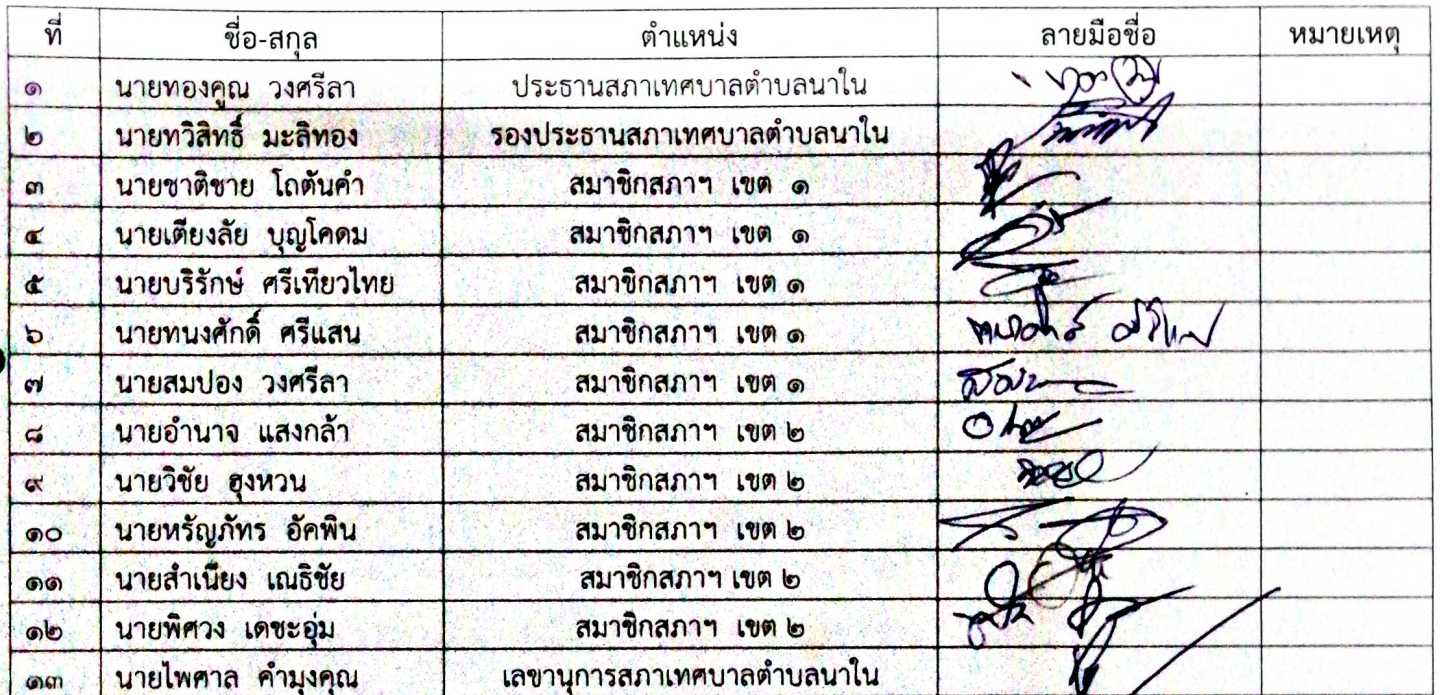 ที่ ชื่อ-สกุล ตำแหน่ง ลายมือชื่อ หมายเหตุ
๑ นายทองคูณ วงศรีลา ประธานสภาเทศบาลตำบลนาใน
๒ นายทวิสิทธิ์ มะลิทอง รองประธานสภาเทศบาลตำบลนาใน
๓ นายชาติชาย โถตันคำ สมาชิกสภาฯ เขต ๑
๔ นายเตียงลัย บุญโคดม สมาชิกสภาฯ เขต ๑
๕ นายบริรักษ์ ศรีเทียวไทย สมาชิกสภาฯ เขต ๑
๖ นายทนงศักดิ์ ศรีแสน สมาชิกสภาฯ เขต ๑
๗ นายสมปอง วงศรีลา สมาชิกสภาฯ เขต ๑
๘ นายอำนาจ แสงกล้า สมาชิกสภาฯ เขต ๒
๙ นายวิชัย ฮุงหวน สมาชิกสภาฯ เขต ๒
๑๐ นายหรัญภัทร อัคพิน สมาชิกสภาฯ เขต ๒
๑๑ นายสำเนียง เณธิชัย สมาชิกสภาฯ เขต ๒
๑๒ นายพิศวง เดชะอุ่ม สมาชิกสภาฯ เขต ๒
๑๓ นายไพศาล คำมุงคุณ เลขานุการสภาเทศบาลตำบลนาใน